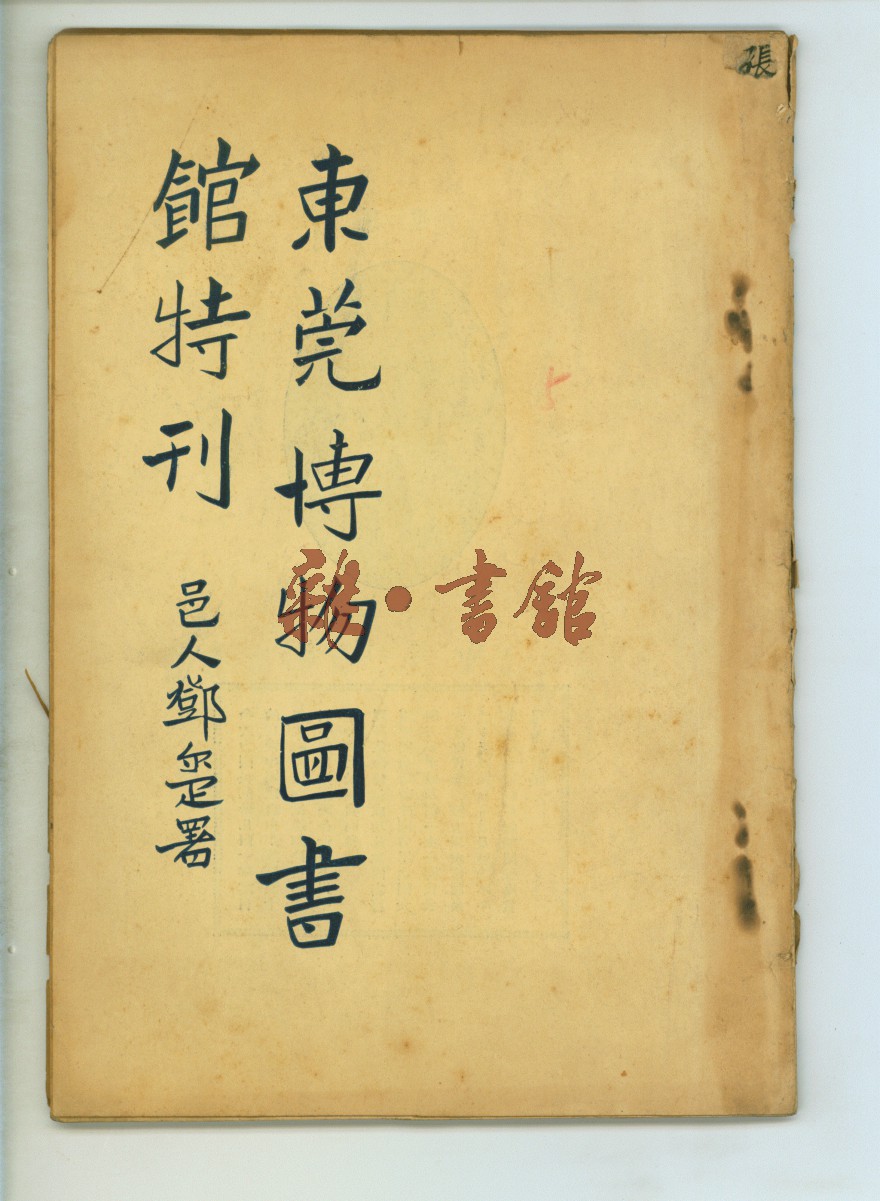 張
東莞博物圖書
館特刊
邑人鄧爾疋署
5
書館